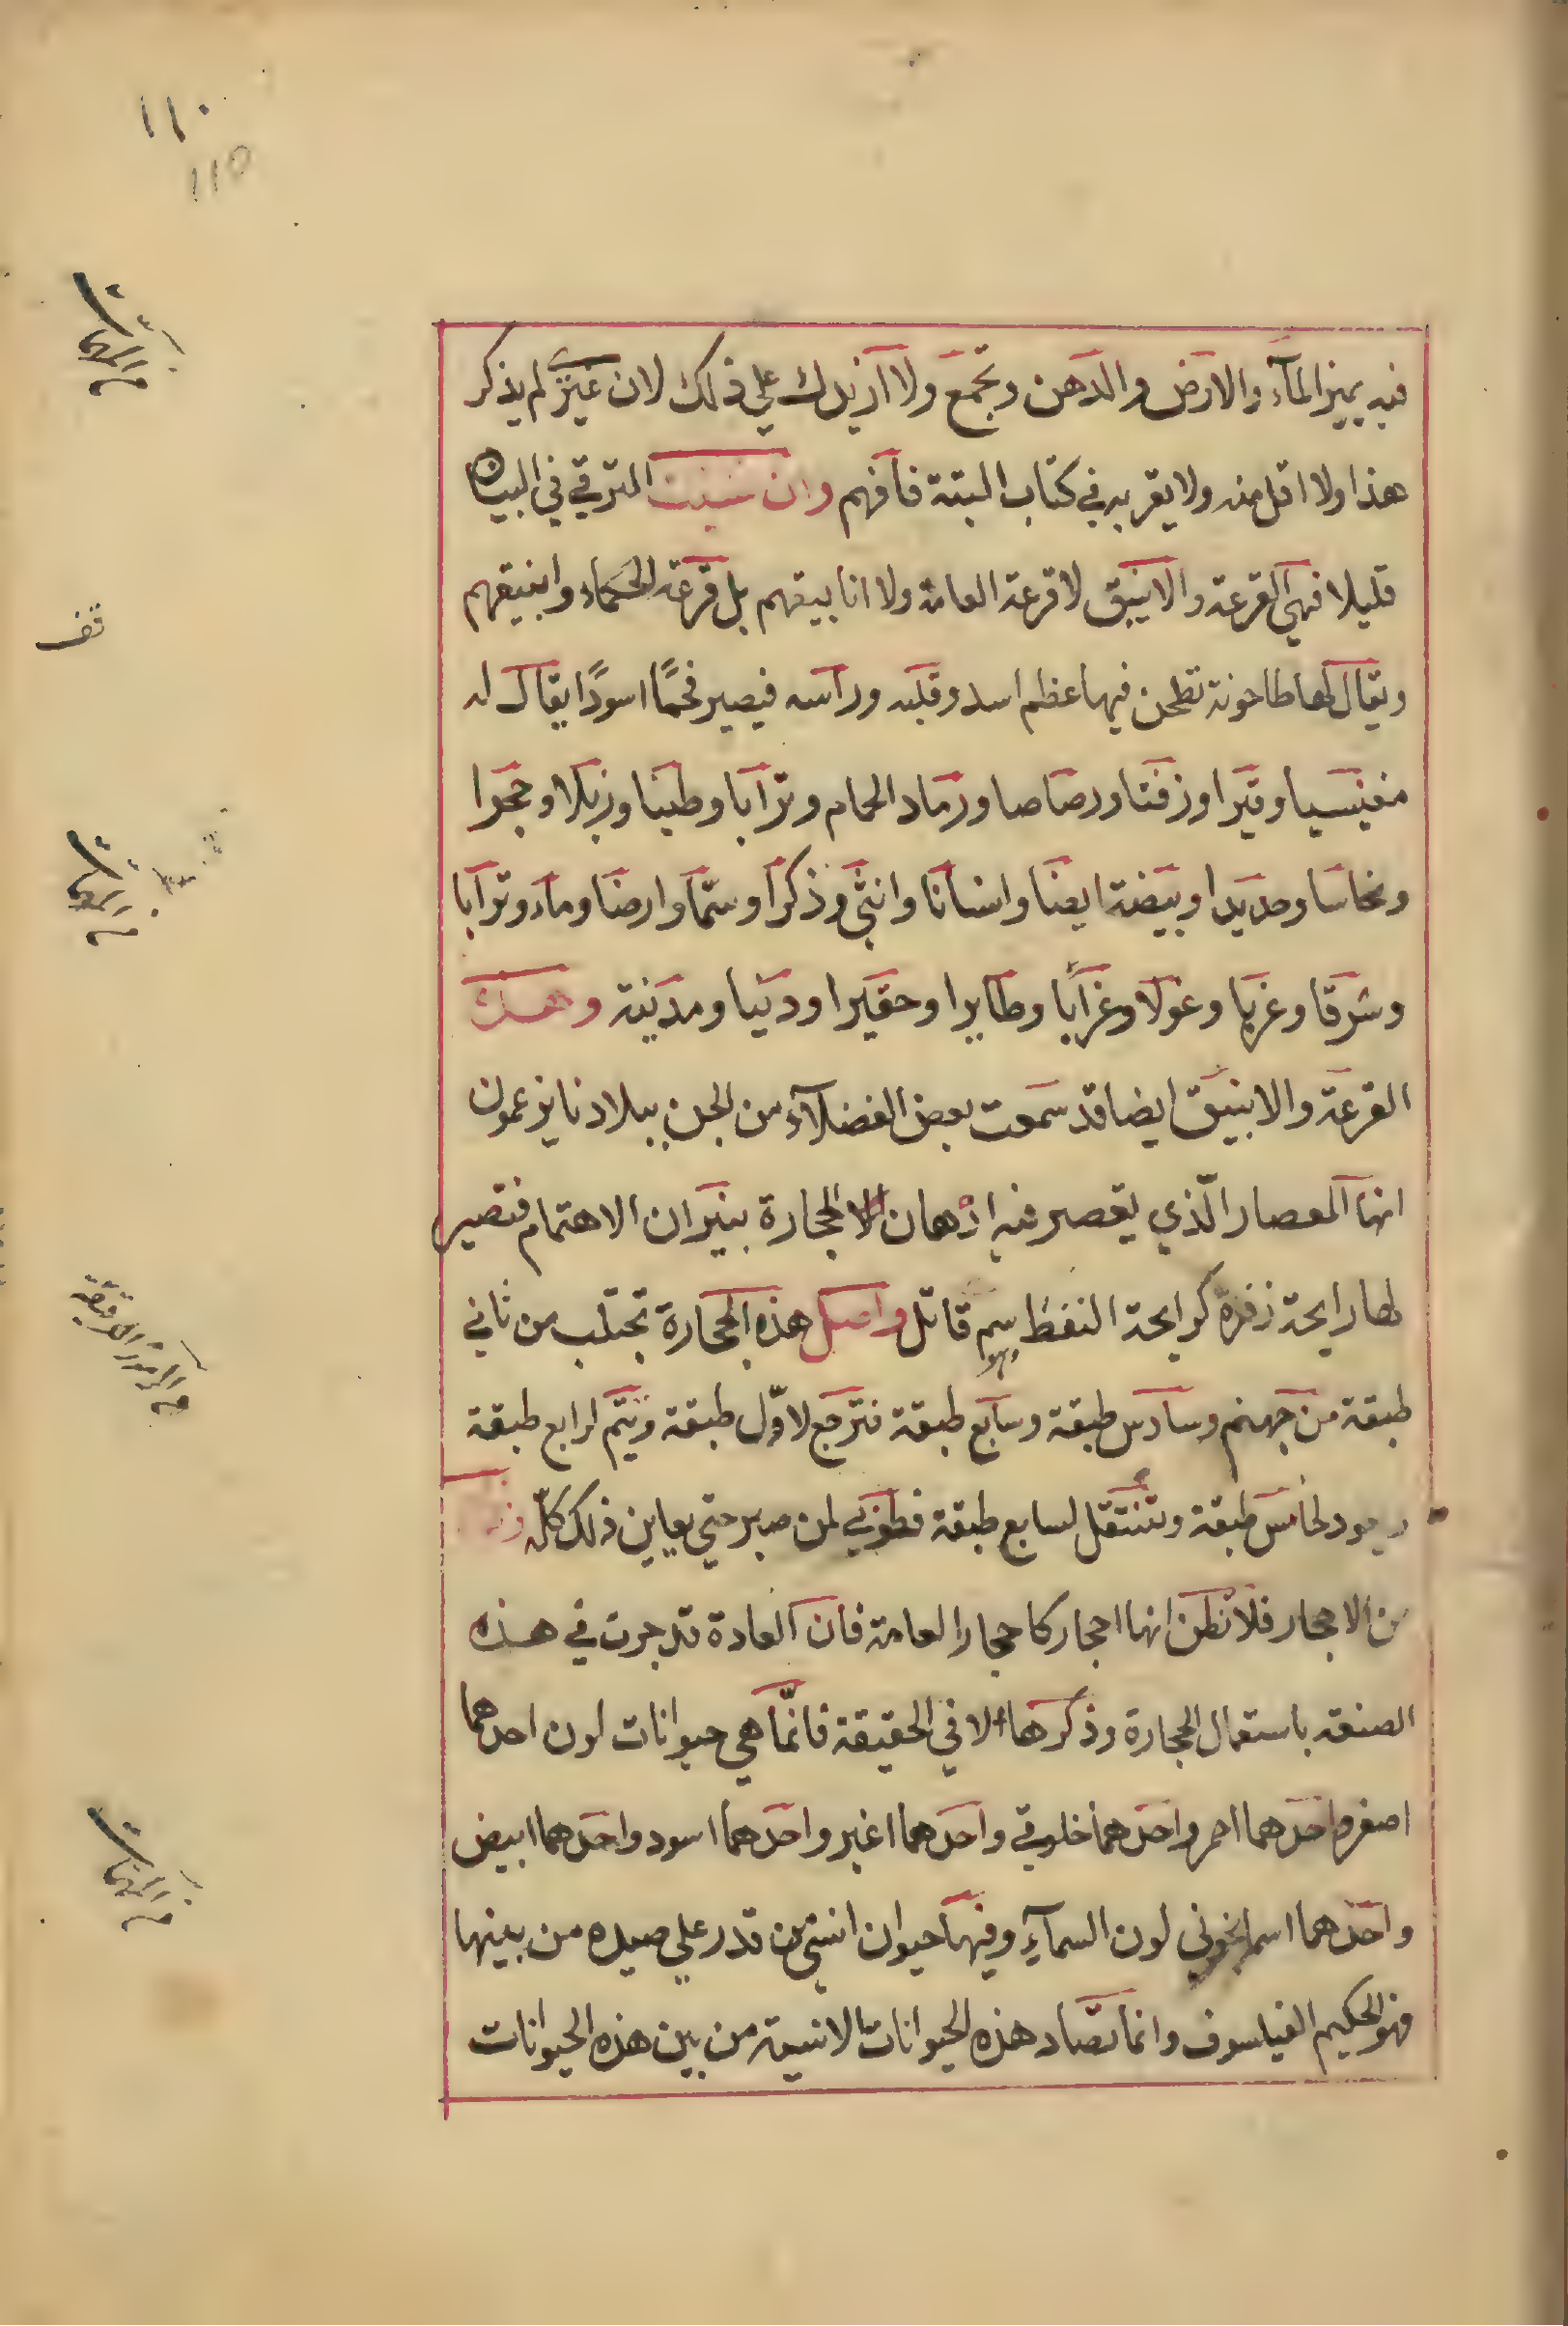 ١١٠
١١٥
فيه يميز المآء والارض والدهن وتجمع ولا ازيدك علي ذلك لان غيري لم يذكر
هذا ولا اقل منه ولا يقر به في كتاب البتة فافهم وان شيت الترقي في البيان
قليلا فهي القرعة والانبيق لا قرعة العامة ولا انابيقهم بل قرعة الحكماء وانبيقهم
ويقال لها طاحونة تطحن فيها عظم اسد وقلبه وراسه فيصير فحمًا اسودًا يقال له
مغنيسيا وقيرا وزفتا ورصاصا ورماد الحمام وترابا وطينا وزبلا وحجرا
ونحاسا وحديدا وبيضة ايضا وانسانا وانثي وذكرا وسمّا وارضا وماء وترابا
وشرقا وغربا وغولا وغرابا وطايرا وحقيرا ودنيا ومدينة وهذه
القرعة والانبيق ايضا قد سمعت بعض الفضلآء من الجن ببلادنا يزعمون
انها المعصار الّذي يعصر فيه ادهان الحجارة بنيران الاهتمام فتصير
لها رايحة زفرة كرايحة النفط سم قاتل واصل هذه الحجارة تجتلب من ثاني
طبقة من جهنم وسادس طبقة وسابع طبقة فترجع لاوّل طبقة ويتم لرابع طبقة
ويعود لخامس طبقة وتنتقل لسابع طبقة فطوبي لمن صبر حتي يعاين ذلك كلّه
من الاحجار فلا تظن انها احجار كاحجار العامة فان العادة قد جرت في هذه
الصنعه باستعمال الحجارة وذكرها الا في الحقيقة فانّما هي حيوانات لون احدهما
اصفر واحدهما احمر واحدهما خلوقي واحدهما اغبر واحدهما اسود واحدهما ابيض
واحدهما اسمانجوني لون السمآء وفيها حيوان انسي من قدر علي صيده من بينها
فهو الحكيم الفيلسوف وانما تصاد هذه الحيوانات الانسية من بين هذه الحيوانات
قف